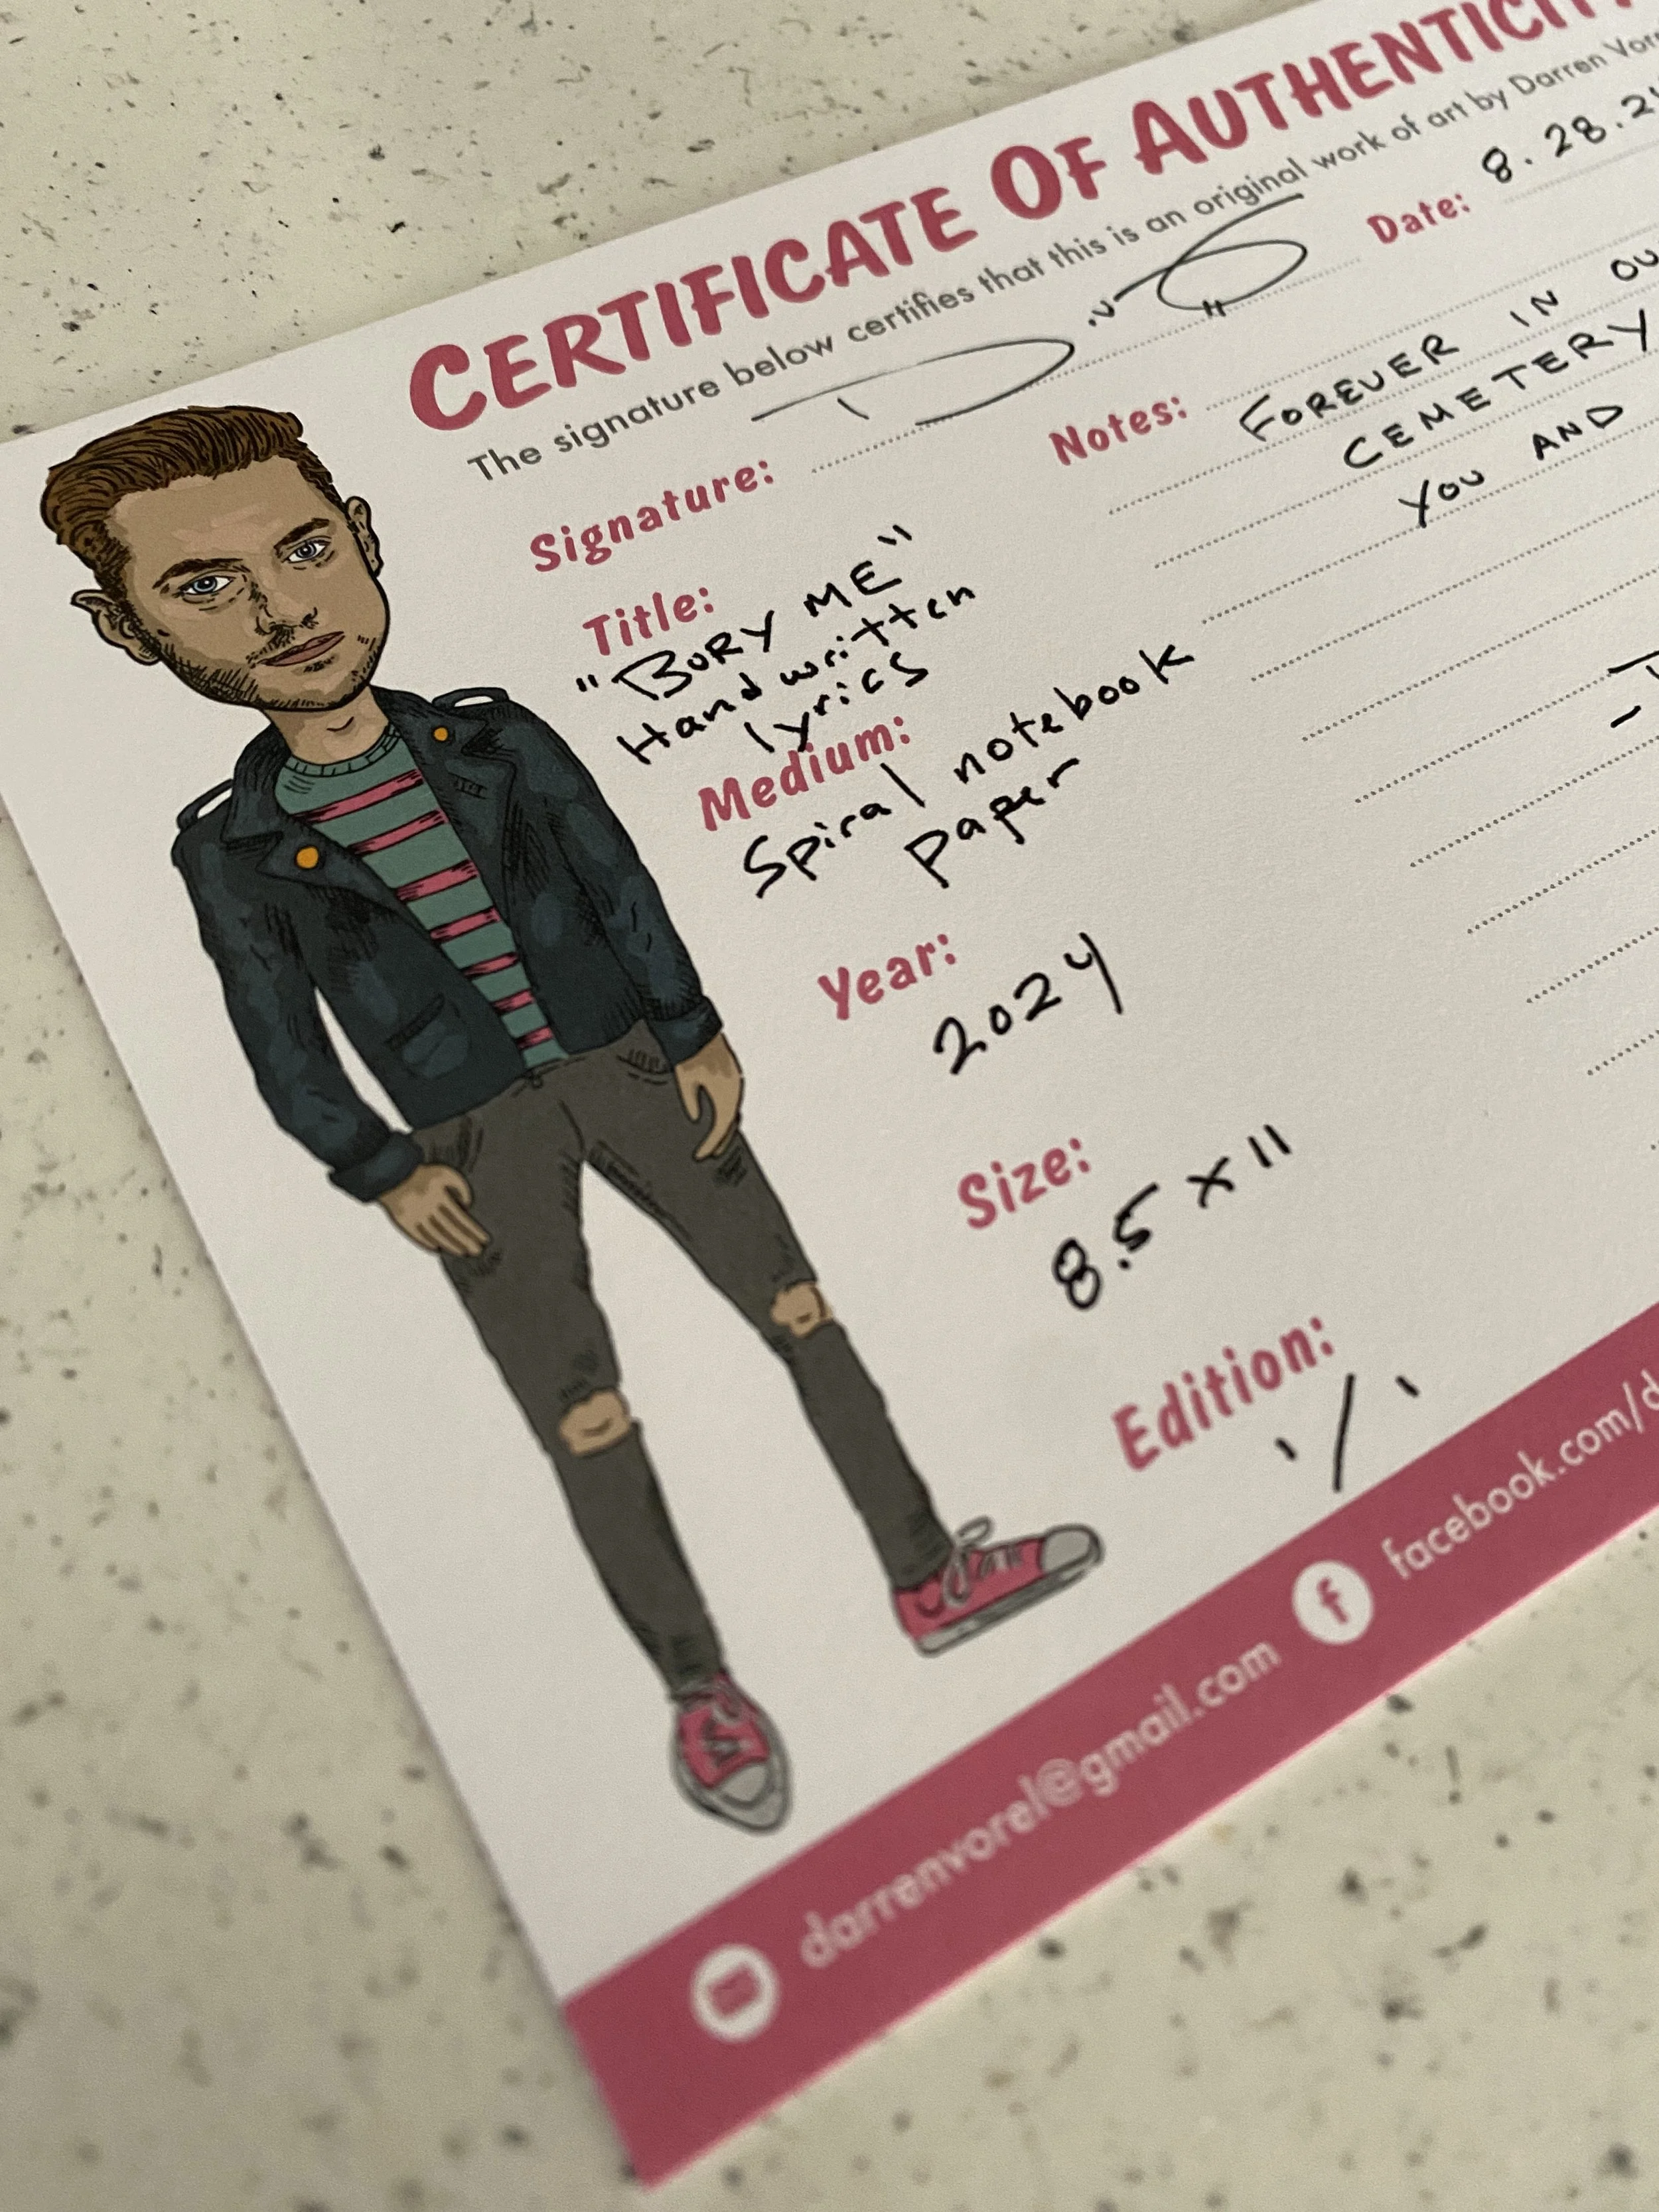 CERTIFICATE OF AUTHENTICIT
The signature below certifies that this is an original work of art by Darren
Signature:
Date: 8.28.2
Title:
"BURY ME"
Handwritten
lyrics
Medium:
Spiral notebook
paper
Year:
2024
Size:
8.5 x 11
Edition:
1/1
Notes: FOREVER IN
CEMETERY
YOU AND
darrenvorel@gmail.com
facebook.com/d